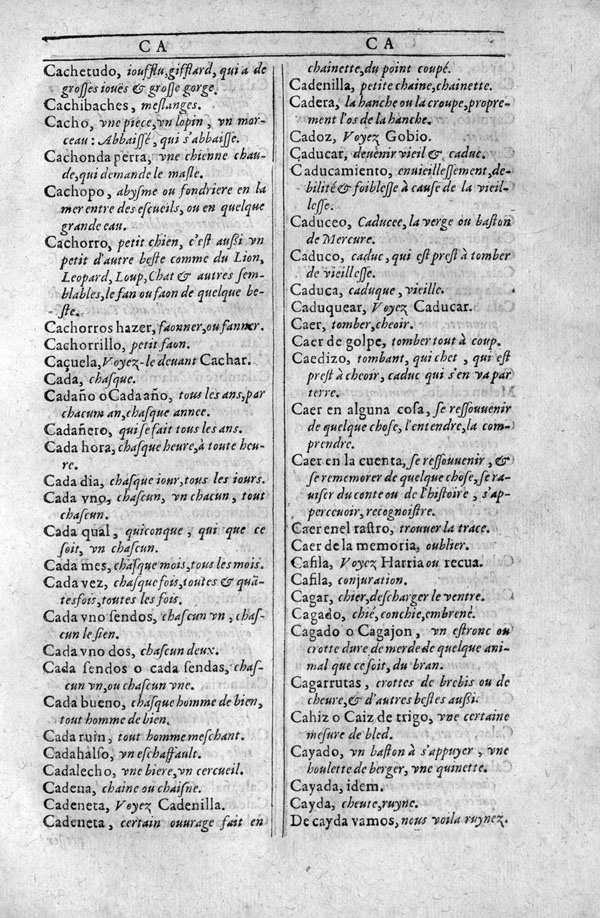 CA
Cachetudo, ioufflu, gifflard, qui a de
grosses iouës & grosse gorge.
Cachibaches, meslanges.
Cacho, vne piece, vn lopin, vn mor-
ceau: Abbaissé, qui s'abbaisse.
Cachonda perra, vne chienne chau-
de, qui demande le masle.
Cachopo, abysme ou fondriere en la
mer entre des escueils, ou en quelque
grande eau.
Cachorro, petit chien, c'est aussi vn
petit d'autre beste comme du Lion,
Leopard, Loup, Chat & autres sem-
blables, le fan ou faon de quelque be-
ste.
Cachorros hazer, faonner, ou fanner.
Cachorrillo, petit faon.
Caçuela, Voyez-le deuant Cachar.
Cada, chasque.
Cadaño o Cada año, tous les ans, par
chacum an, chasque annee.
Cadañero, qui se fait tous les ans.
Cada hora, chasque heure, à toute heu-
re.
Cada dia, chasque iour, tous les iours.
Cada vno, chascun, vn chacun, tout
chascun.
Cada qual, quiconque, qui que ce
soit, vn chascun.
Cada mes, chasque mois, tous les mois.
Cada vez, chasque fois, toutes & quã-
tesfois, toutes les fois.
Cada vno sendos, chascun vn, chas-
cun le sien.
Cada vno dos, chascun deux.
Cada sendos o cada sendas, chas-
cun vn, ou chascun vne.
Cada bueno, chasque homme de bien,
tout homme de bien.
Cada ruin, tout homme meschant.
Cadahalso, vn eschaffault.
Cadalecho, vne biere, vn cercueil.
Cadena, chaine ou chaisne.
Cadeneta, Voyez Cadenilla.
Cadeneta, certain ouurage fait en
CA
chainette, du point coupé.
Cadenilla, petite chaine, chainette.
Cadera, la hanche ou la croupe, propre-
ment l'os de la hanche.
Cadoz, Voyez Gobio.
Caducar, deuenir vieil & caduc.
Caducamiento, enuieillessement, de-
bilité & foiblesse à cause de la vieil-
lesse.
Caduceo, Caducee, la verge ou baston
de Mercure.
Caduco, caduc, qui est prest à tomber
de vieillesse.
Caduca, caduque, vieille.
Caduquear, Voyez Caducar.
Caer, tomber, cheoir.
Caer de golpe, tomber tout à coup.
Caedizo, tombant, qui chet, qui est
prest à cheoir, caduc qui s'en va par
terre.
Caer en alguna cosa, se ressouuenir
de quelque chose, l'entendre, la com-
prendre.
Caer en la cuenta, se ressouuenir, &
se rememorer de quelque chose, se ra-
uiser du conte ou de l'histoire, s'ap-
perceuoir, recognoistre.
Caer enel rastro, trouuer la trace.
Caer de la memoria, oublier.
Cafila, Voyez Harria ou recua.
Cafila, conjuration.
Cagar, chier, descharger le ventre.
Cagado, chié, conchie, embrené.
Cagado o Cagajon, vn estronc ou
crotte dure de merde de quelque ani-
mal que ce soit, du bran.
Cagarrutas, crottes de brebis ou de
cheure, & d'autres bestes aussi.
Cahiz o Caiz de trigo, vne certaine
mesure de bled.
Cayado, vn baston à s'appuyer, vne
houlette de berger, vne quinette.
Cayada, idem.
Cayda, cheute, ruyne.
De cayda vamos, nous voila ruynez.